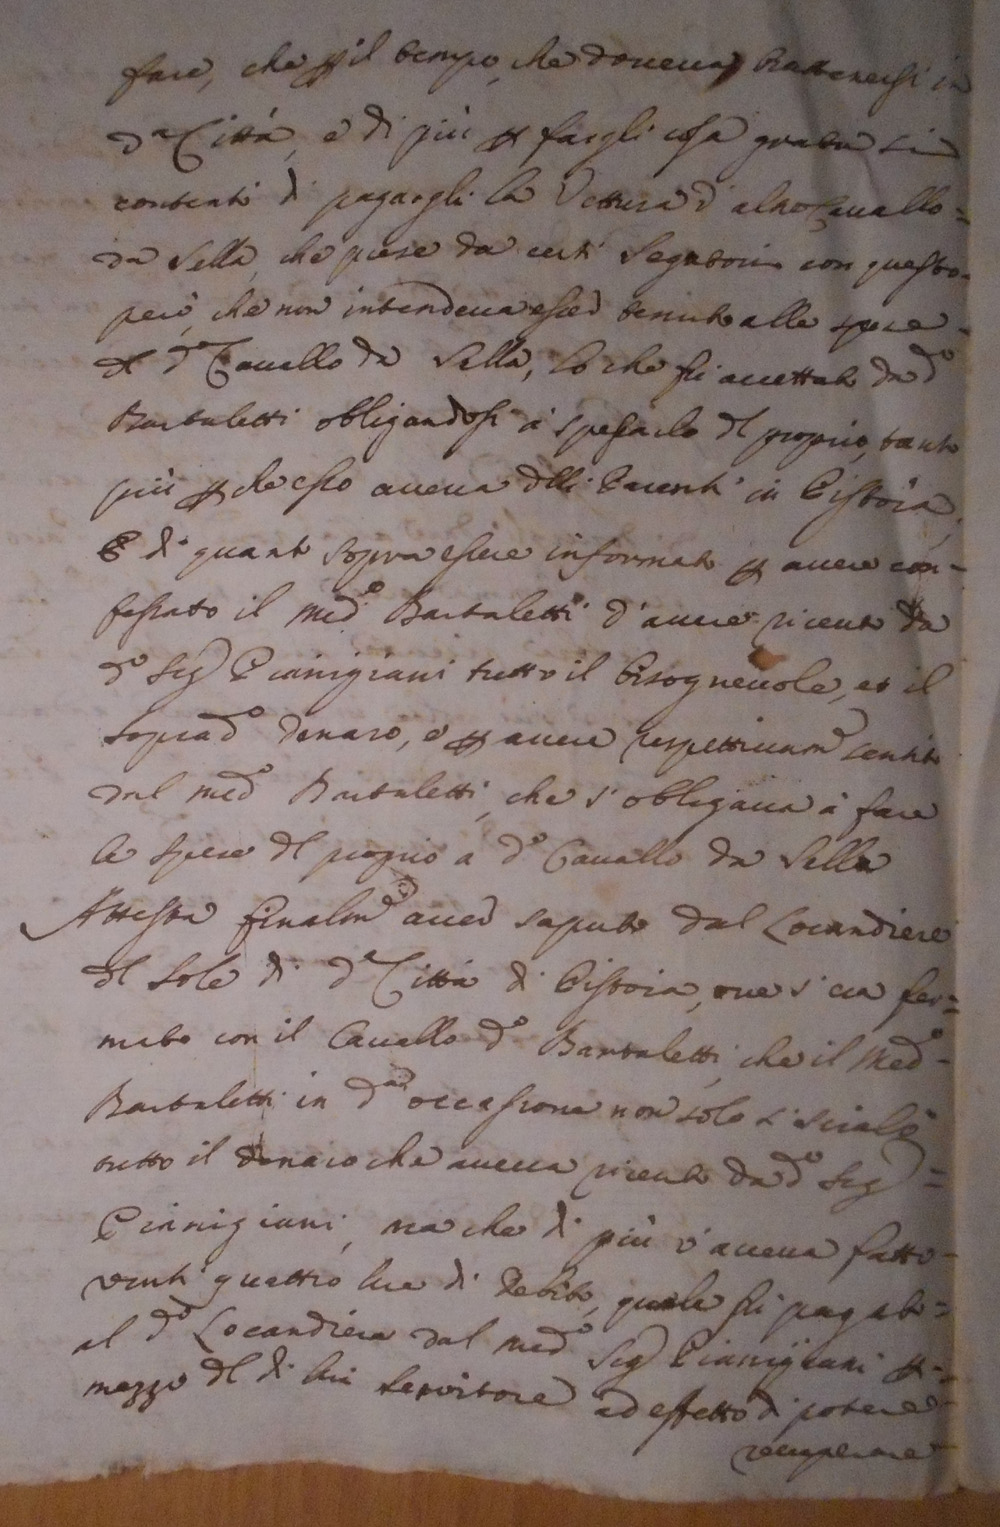 fare, che p il tempo, che doueua trattenersi in
da Città, e di più p fargli cosa grata si
contentò di pagargli la Vettura d'altro Cauallo=
da Sella, che prese da certi Segatori con questo=
però, che non intendeua esser tenuto alle spese=
dl do Cauallo da Sella, lo che fu accettato da do
Bartaletti obligandosi à spesarlo dl proprio, tanto
più p che esso aueua dlli Parenti in Pistoia,
E di quanto sopra essere informato p auere con=
fessato il medo Bartaletti d'auere riceuto da
do Sigr Piannigiani tutto il bisogneuole, et il
soprado denaro, e p auere respettiuamte sentito
dal medo Bartaletti, che s'obligaua à fare
le spese dl proprio a do Cauallo da Sella
Attesta finalmte auer saputo dal Locandiere
dl Sole di da Città di Pistoia, oue s'era fer=
mato con il Cauallo do Bartaletti, che il Medo=
Bartaletti in da occasione non solo si scialò
tutto il denaro che aueua riceuto da do Sigr=
Piannigiani, ma che di più v'aueua fatto=
venti quattro lire di debito, quale fu pagato=
al do Locandiere dal medo Sigr Piannigiani p=
mezzo dl di lui Seruitore ad effetto di potere=
recuperare=